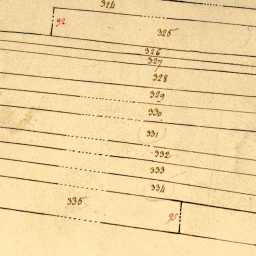 324
92
325
326
327
328
329
330
331
332
333
334
335